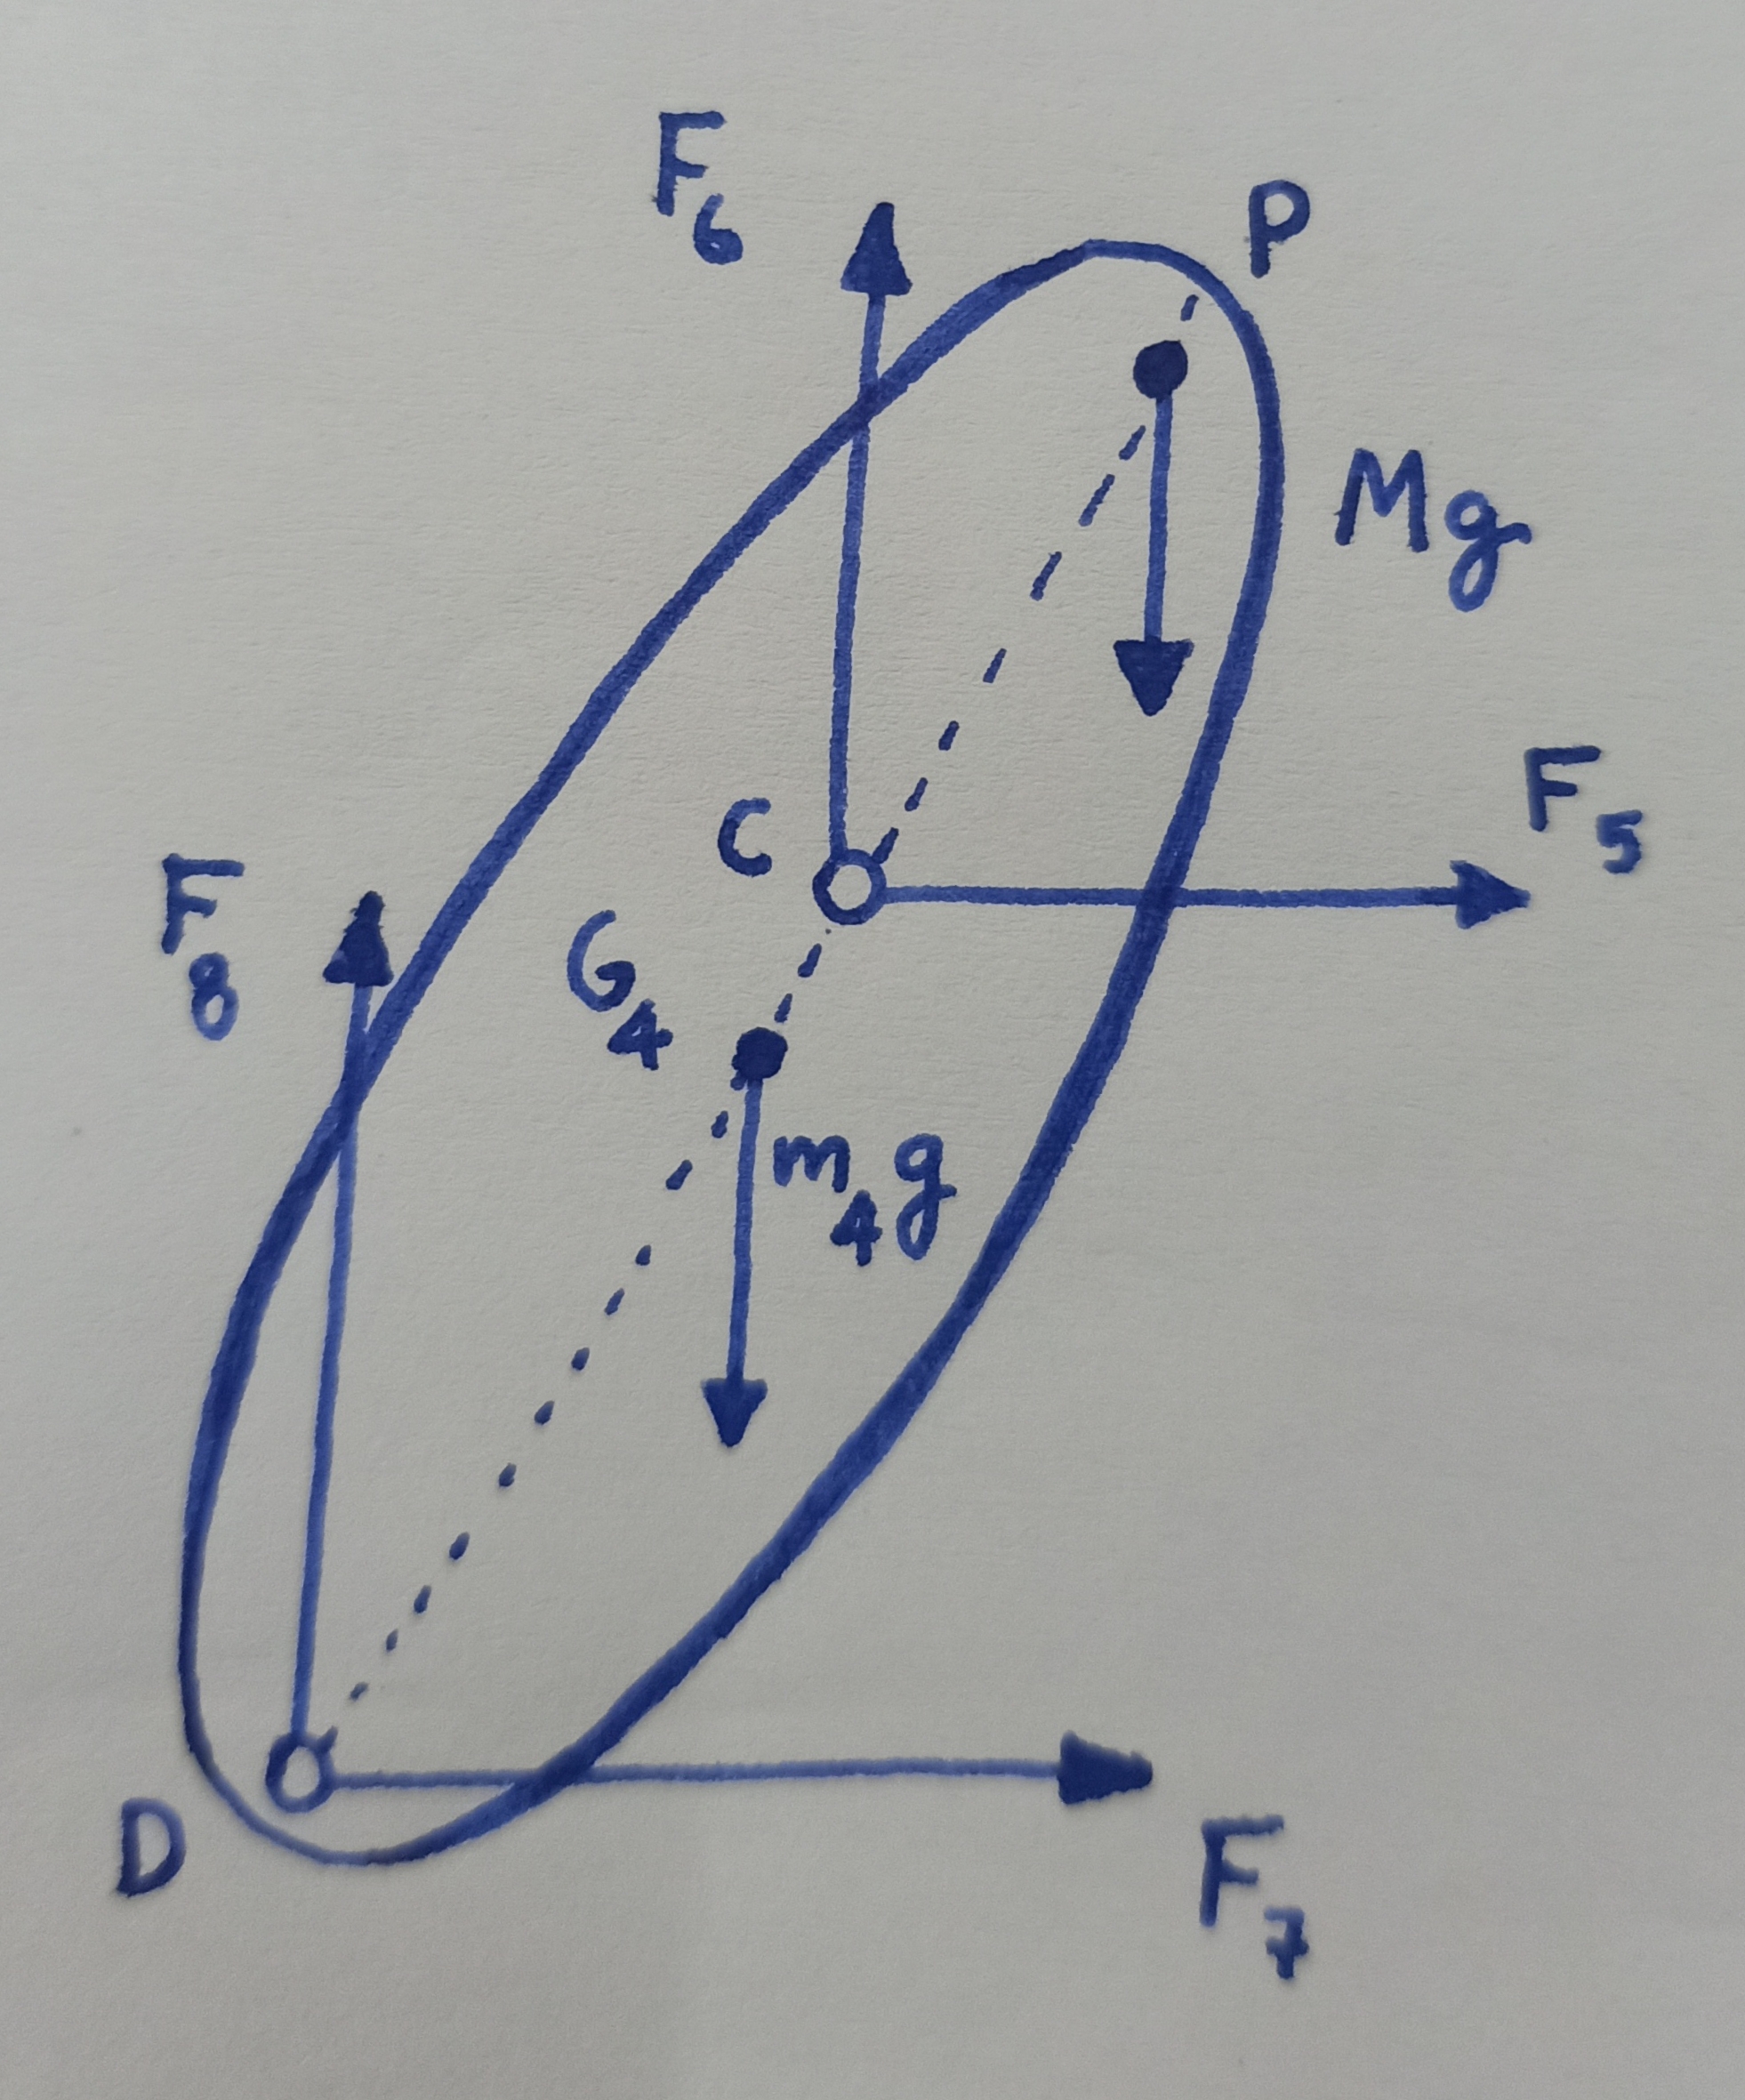 F₆
P
Mg
F₅
C
F₈
G₄
m₄g
D
F₇